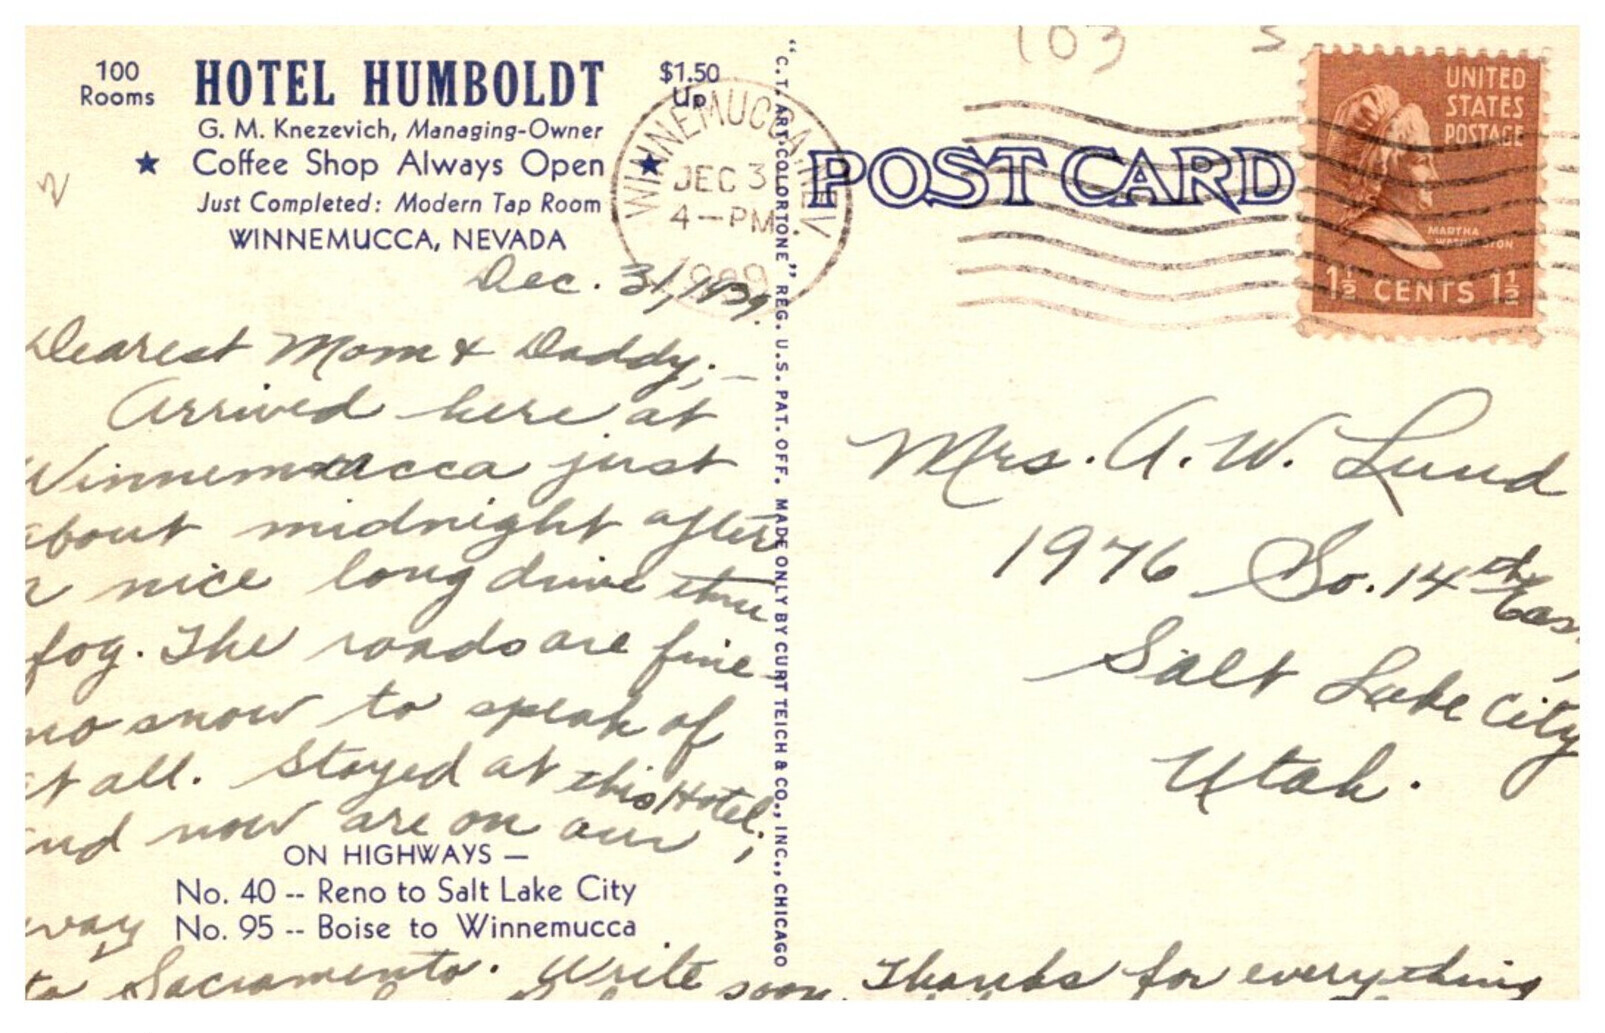 103 S
100
Rooms
HOTEL HUMBOLDT
$1.50
Up
G. M. Knezevich, Managing-Owner
★ Coffee Shop Always Open ★
Just Completed: Modern Tap Room
WINNEMUCCA, NEVADA
WINNEMUCCA, NEV
DEC 31
4-PM
1939
POST CARD
UNITED
STATES
POSTAGE
MARTHA
WASHINGTON
1½ CENTS 1½
Dec. 31, 1939.
Dearest Mom & Daddy; —
Arrived here at
Winnemucca just
about midnight after
a nice long drive thru
fog. The roads are fine -
no snow to speak of
at all. Stayed at this Hotel;
and now are on our
way
to Sacramento. Write soon.
Thanks for everything
ON HIGHWAYS —
No. 40 -- Reno to Salt Lake City
No. 95 -- Boise to Winnemucca
"C.T. ART-COLORTONE" REG. U.S. PAT. OFF. MADE ONLY BY CURT TEICH & CO., INC., CHICAGO
Mrs. A. W. Lund
1976 So. 14th East,
Salt Lake City
Utah.